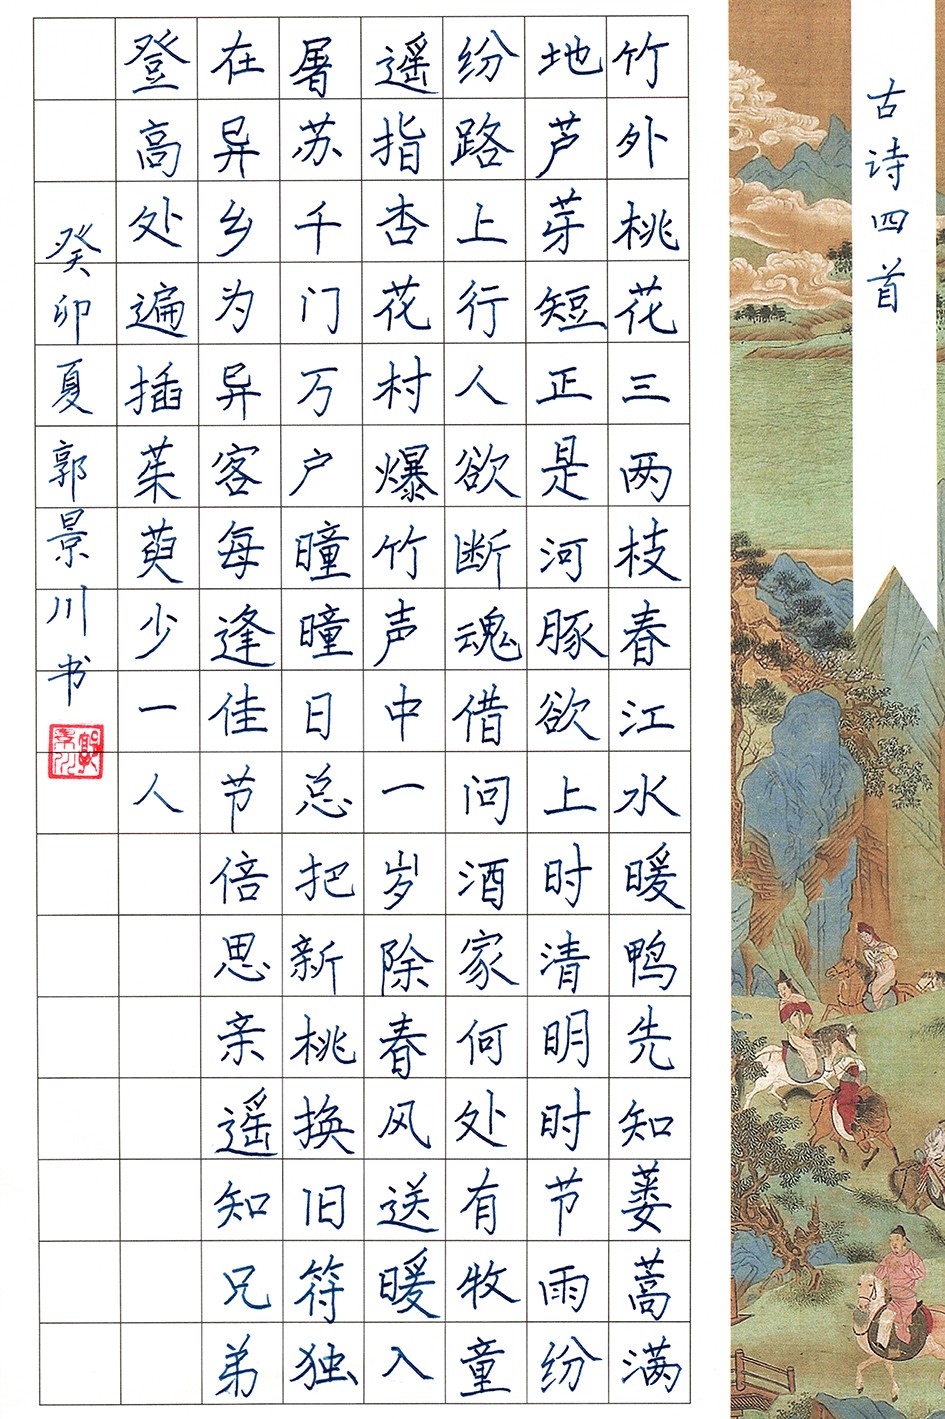 古诗四首
竹外桃花三两枝春江水暖鸭先知蒌蒿满
地芦芽短正是河豚欲上时清明时节雨纷
纷路上行人欲断魂借问酒家何处有牧童
遥指杏花村爆竹声中一岁除春风送暖入
屠苏千门万户曈曈日总把新桃换旧符独
在异乡为异客每逢佳节倍思亲遥知兄弟
登高处遍插茱萸少一人
癸卯夏郭景川书
郭景川